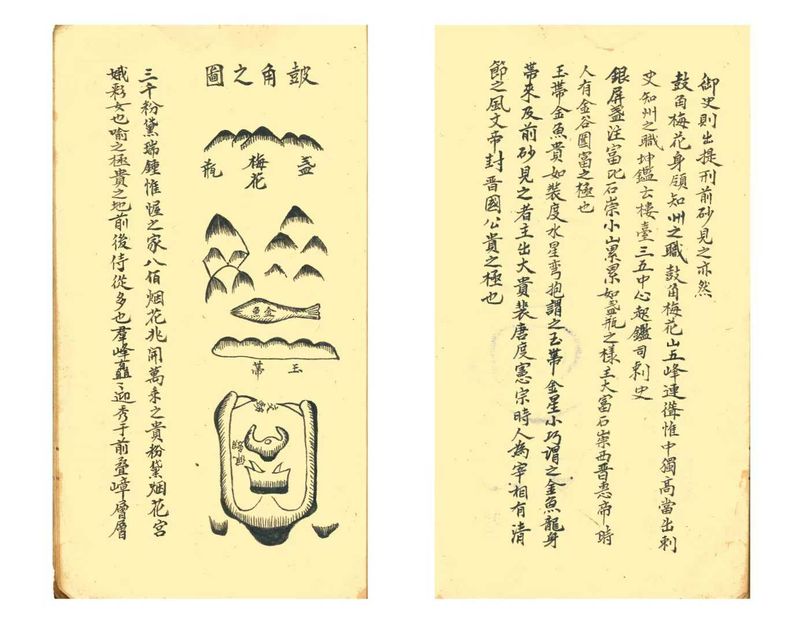 御史則出提刑前砂見之亦然
鼓角梅花身領知州之職鼓角梅花山五峰連溝惟中獨高當出刺
史知州之職坤鑑云樓臺三五中心起鑑司刺史
銀屏盞注富比石崇小山累累如盞瓶之樣主大富石崇西晉惠帝時
人有金谷園富之極也
玉帶金魚貴如裝度水星彎抱謂之玉帶金星小巧謂之金魚龍身
帶來及前砂見之者主出大貴裝唐度憲宗時人為宰相有清
節之風文帝封晉國公貴之極也
鼓角之圖
盞
梅花
瓶
金魚
玉帶
三千粉黛瑞鍾惟幄之家八佰烟花兆開萬乘之貴粉黛烟花宮
娥彩女也喻之極貴之地前後侍從多也羣峰矗〻迎秀于前叠嶂層層